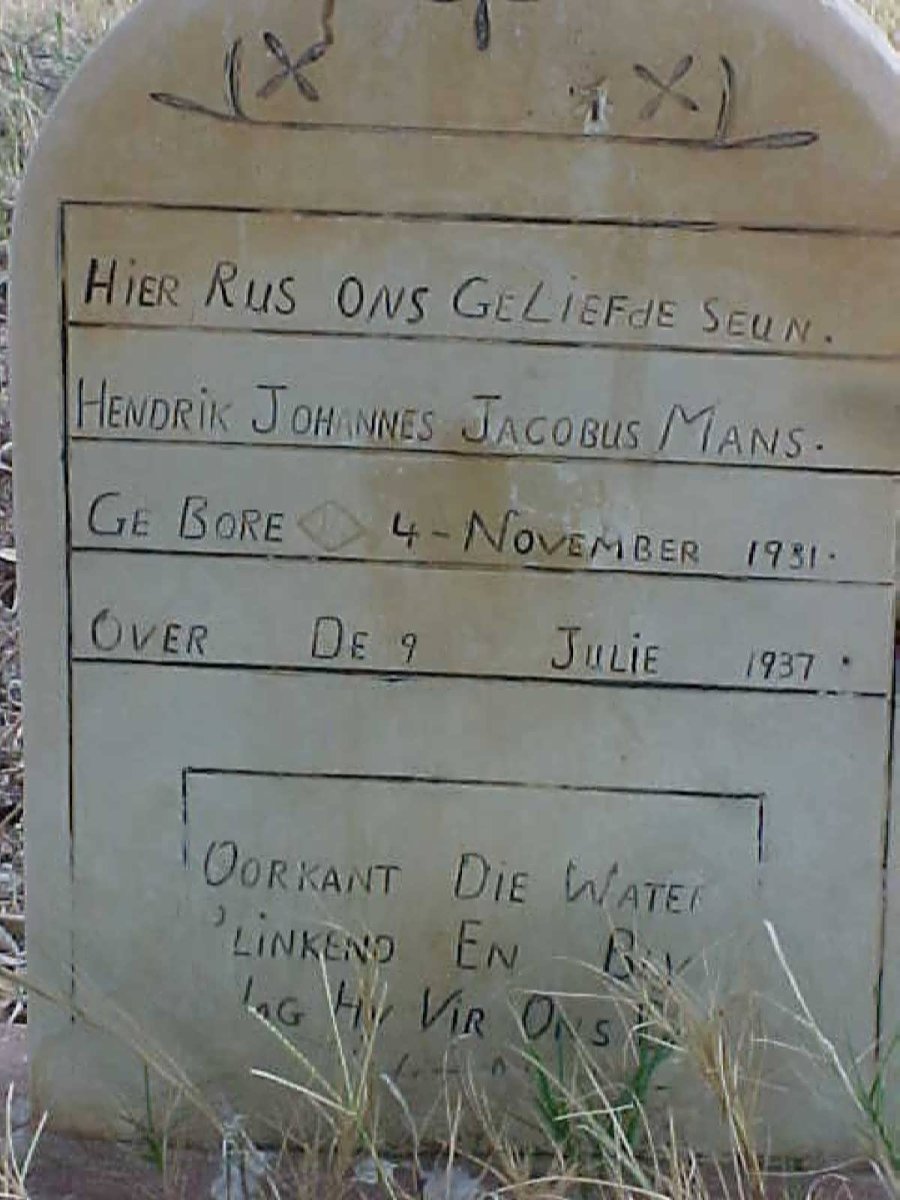 HiER RUS ONS GELiEFdE SEUN.
HENDRiK JOHANNES JACOBUS MANS.
GE BORE 4-NOVEMBER 1931.
OVER DE 9 JULiE 1937.
OORKANT DiE
LiNKEND EN
HY ViR ONS